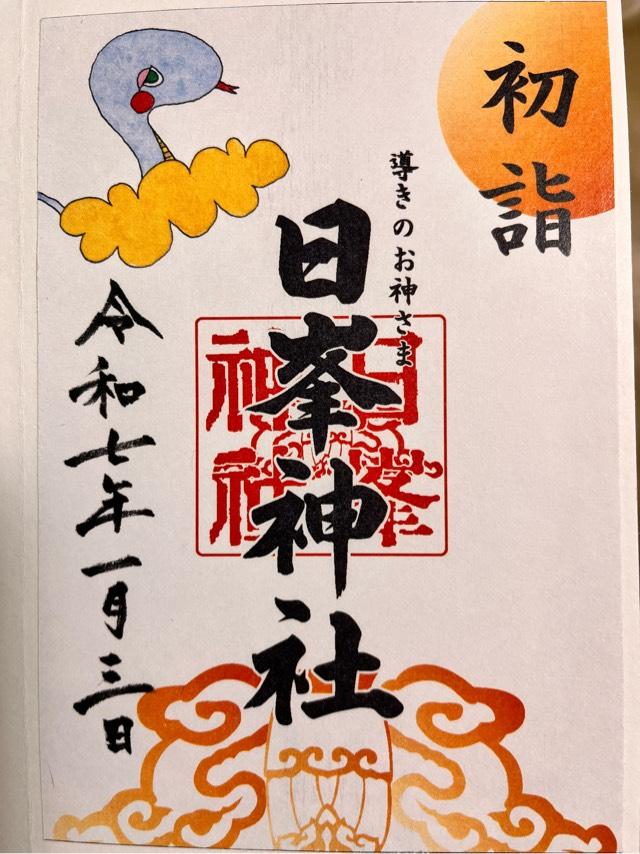 初詣
導きのお神さま
日峯神社
令和七年一月三日